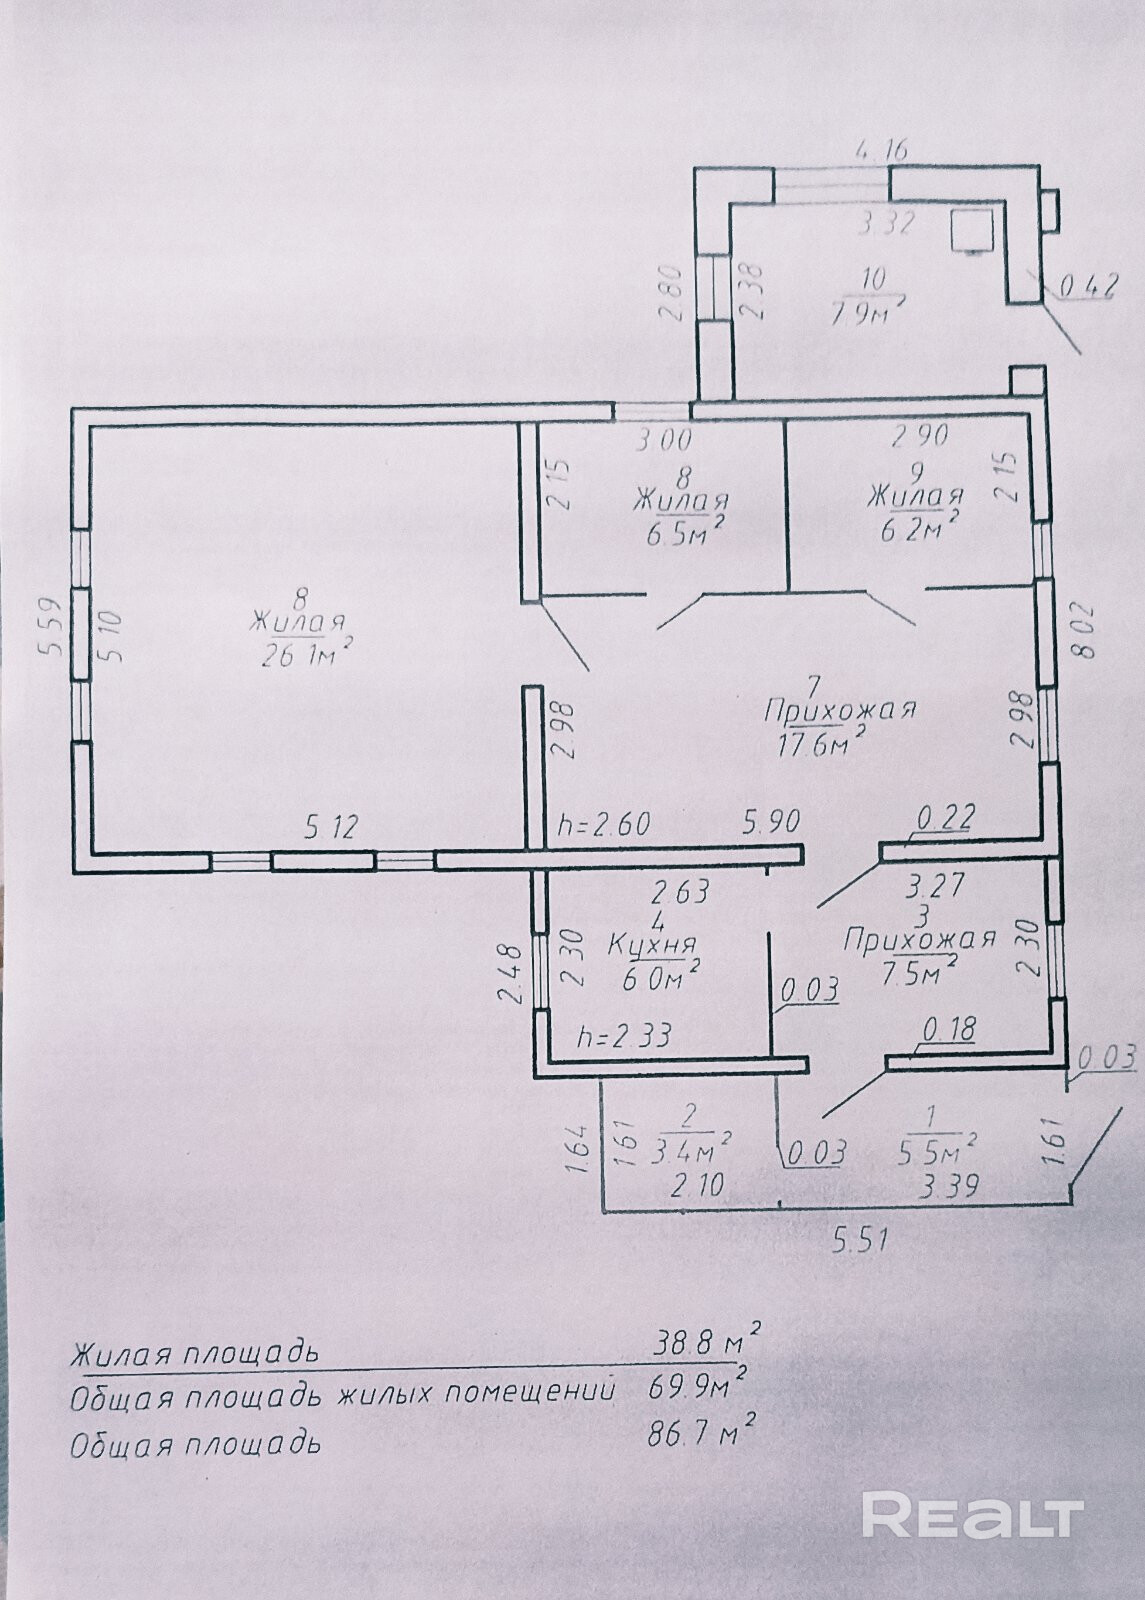 4.16
3.32
2.80
2.38
10
7.9м²
0.42
3.00
2.90
2.15
8
Жилая
6.5м²
9
Жилая
6.2м²
2.15
5.59
5.10
8
Жилая
26.1м²
8.02
7
Прихожая
17.6м²
2.98
2.98
5.12
h=2.60
5.90
0.22
2.63
3.27
4
Кухня
6.0м²
3
Прихожая
7.5м²
2.48
2.30
2.30
0.03
h=2.33
0.18
0.03
1.64
1.61
2
3.4м²
2.10
0.03
1
5.5м²
3.39
1.61
5.51
Жилая площадь 38.8 м²
Общая площадь жилых помещений 69.9м²
Общая площадь 86.7 м²
REALT